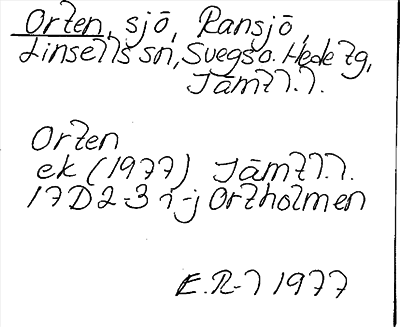 Orten, sjö, Ransjö,
Linsells sn, Svegs o. Hede tg,
Jämtl. l.
Orten
ek (1977) Jämtl. l.
17D 2-3 i-j Ortholmen
E.R-l 1977